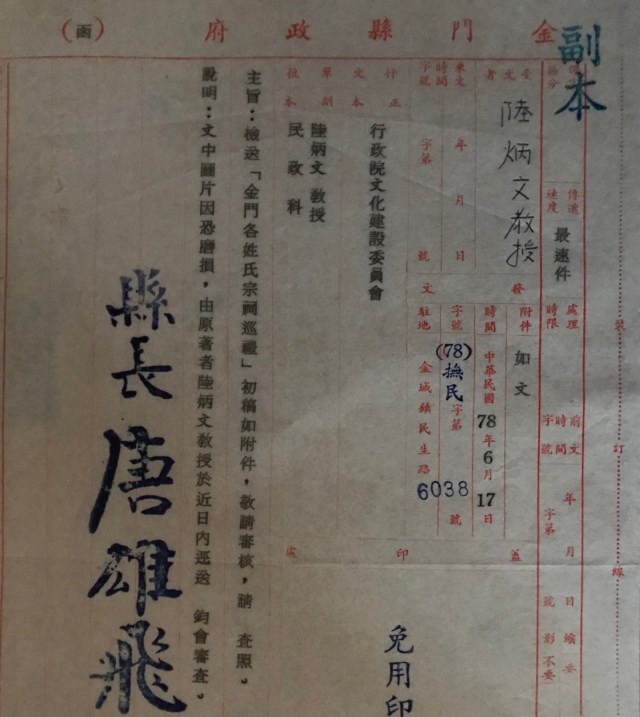 金門縣政府（函）
副本
受文者
陸炳文教授
速別
最速件
傳遞
速度
處理
時限
前文
時間
字號
年月日
字第 號
來文
時間
字號
年月日
字第 號
發文
附件 如文
時間 中華民國78年6月17日
字號 (78)撫民字第6038號
駐地 金城鎮民生路
行文
正本
行政院文化建設委員會
副本
陸炳文教授
民政科
單位
蓋印處
免用印
主旨：檢送「金門各姓氏宗祠巡禮」初稿如附件，敬請審核，請 查照。
說明：文中圖片因恐磨損，由原著者陸炳文教授於近日內逕送 鈞會審查。
縣長唐雄飛
裝訂線